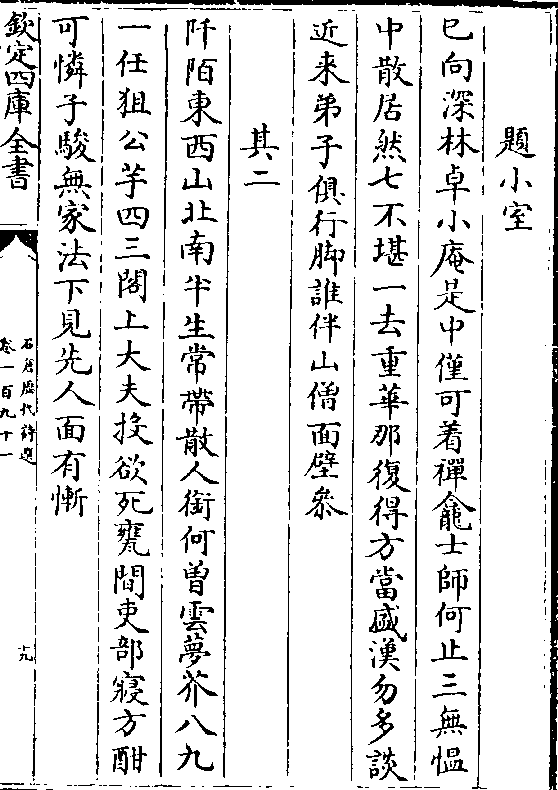 題小室
已向深林卓小庵是中僅可着禪龕士師何止三無愠
中散居然七不堪一去重華那復得方當盛漢勿多談
近来弟子俱行脚誰伴山僧面壁參
其二
阡陌東西山北南半生常帶散人銜何曽雲夢芥八九
一任狙公芧四三閣上大夫投欲死甕間吏部寢方酣
可憐子駿無家法下見先人面有慚
欽定四庫全書
石倉歴代詩選
卷一百九十一
十九